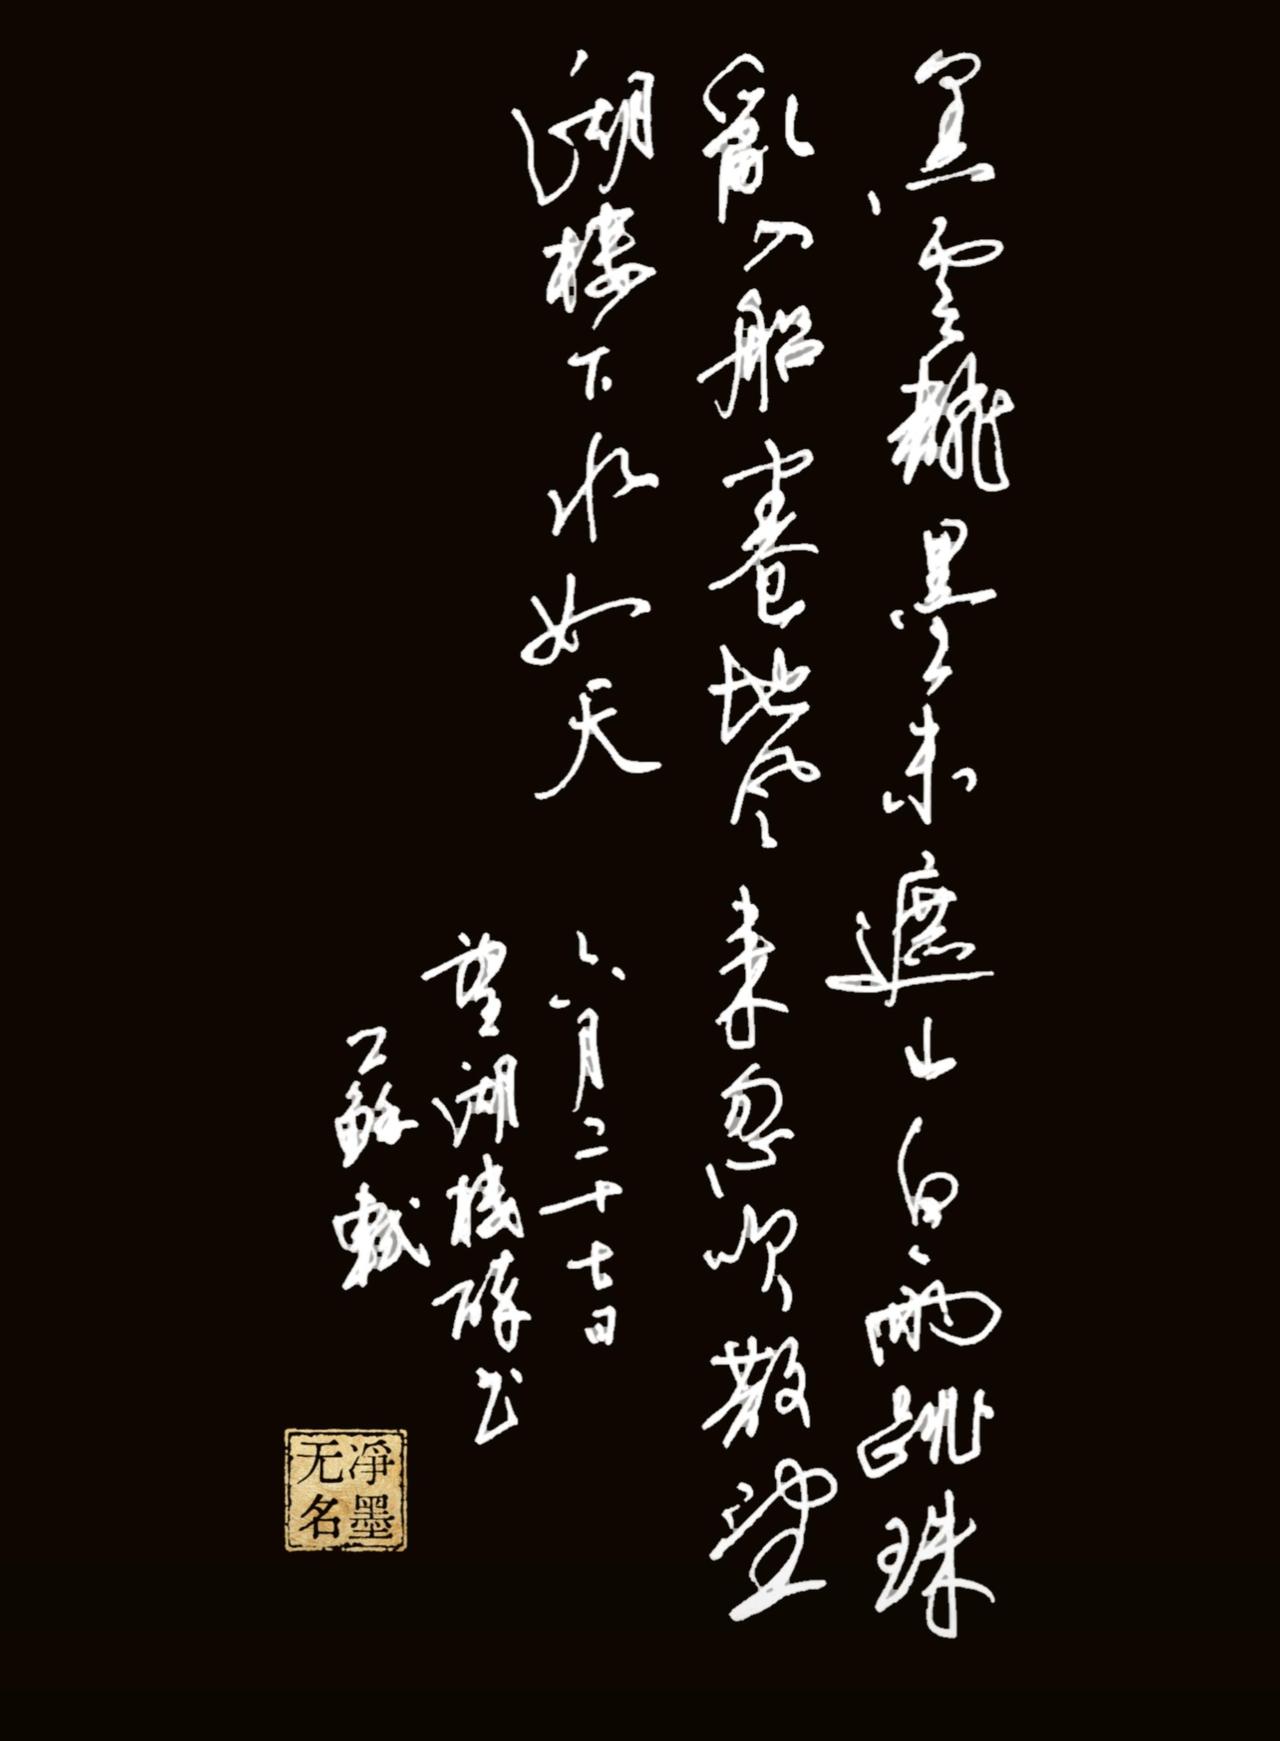 黑雲飜墨未遮山白雨跳珠
亂入船卷地風来忽吹散望
湖楼下水如天
六月二十七日
望湖楼醉书
蘇軾
净墨
无名